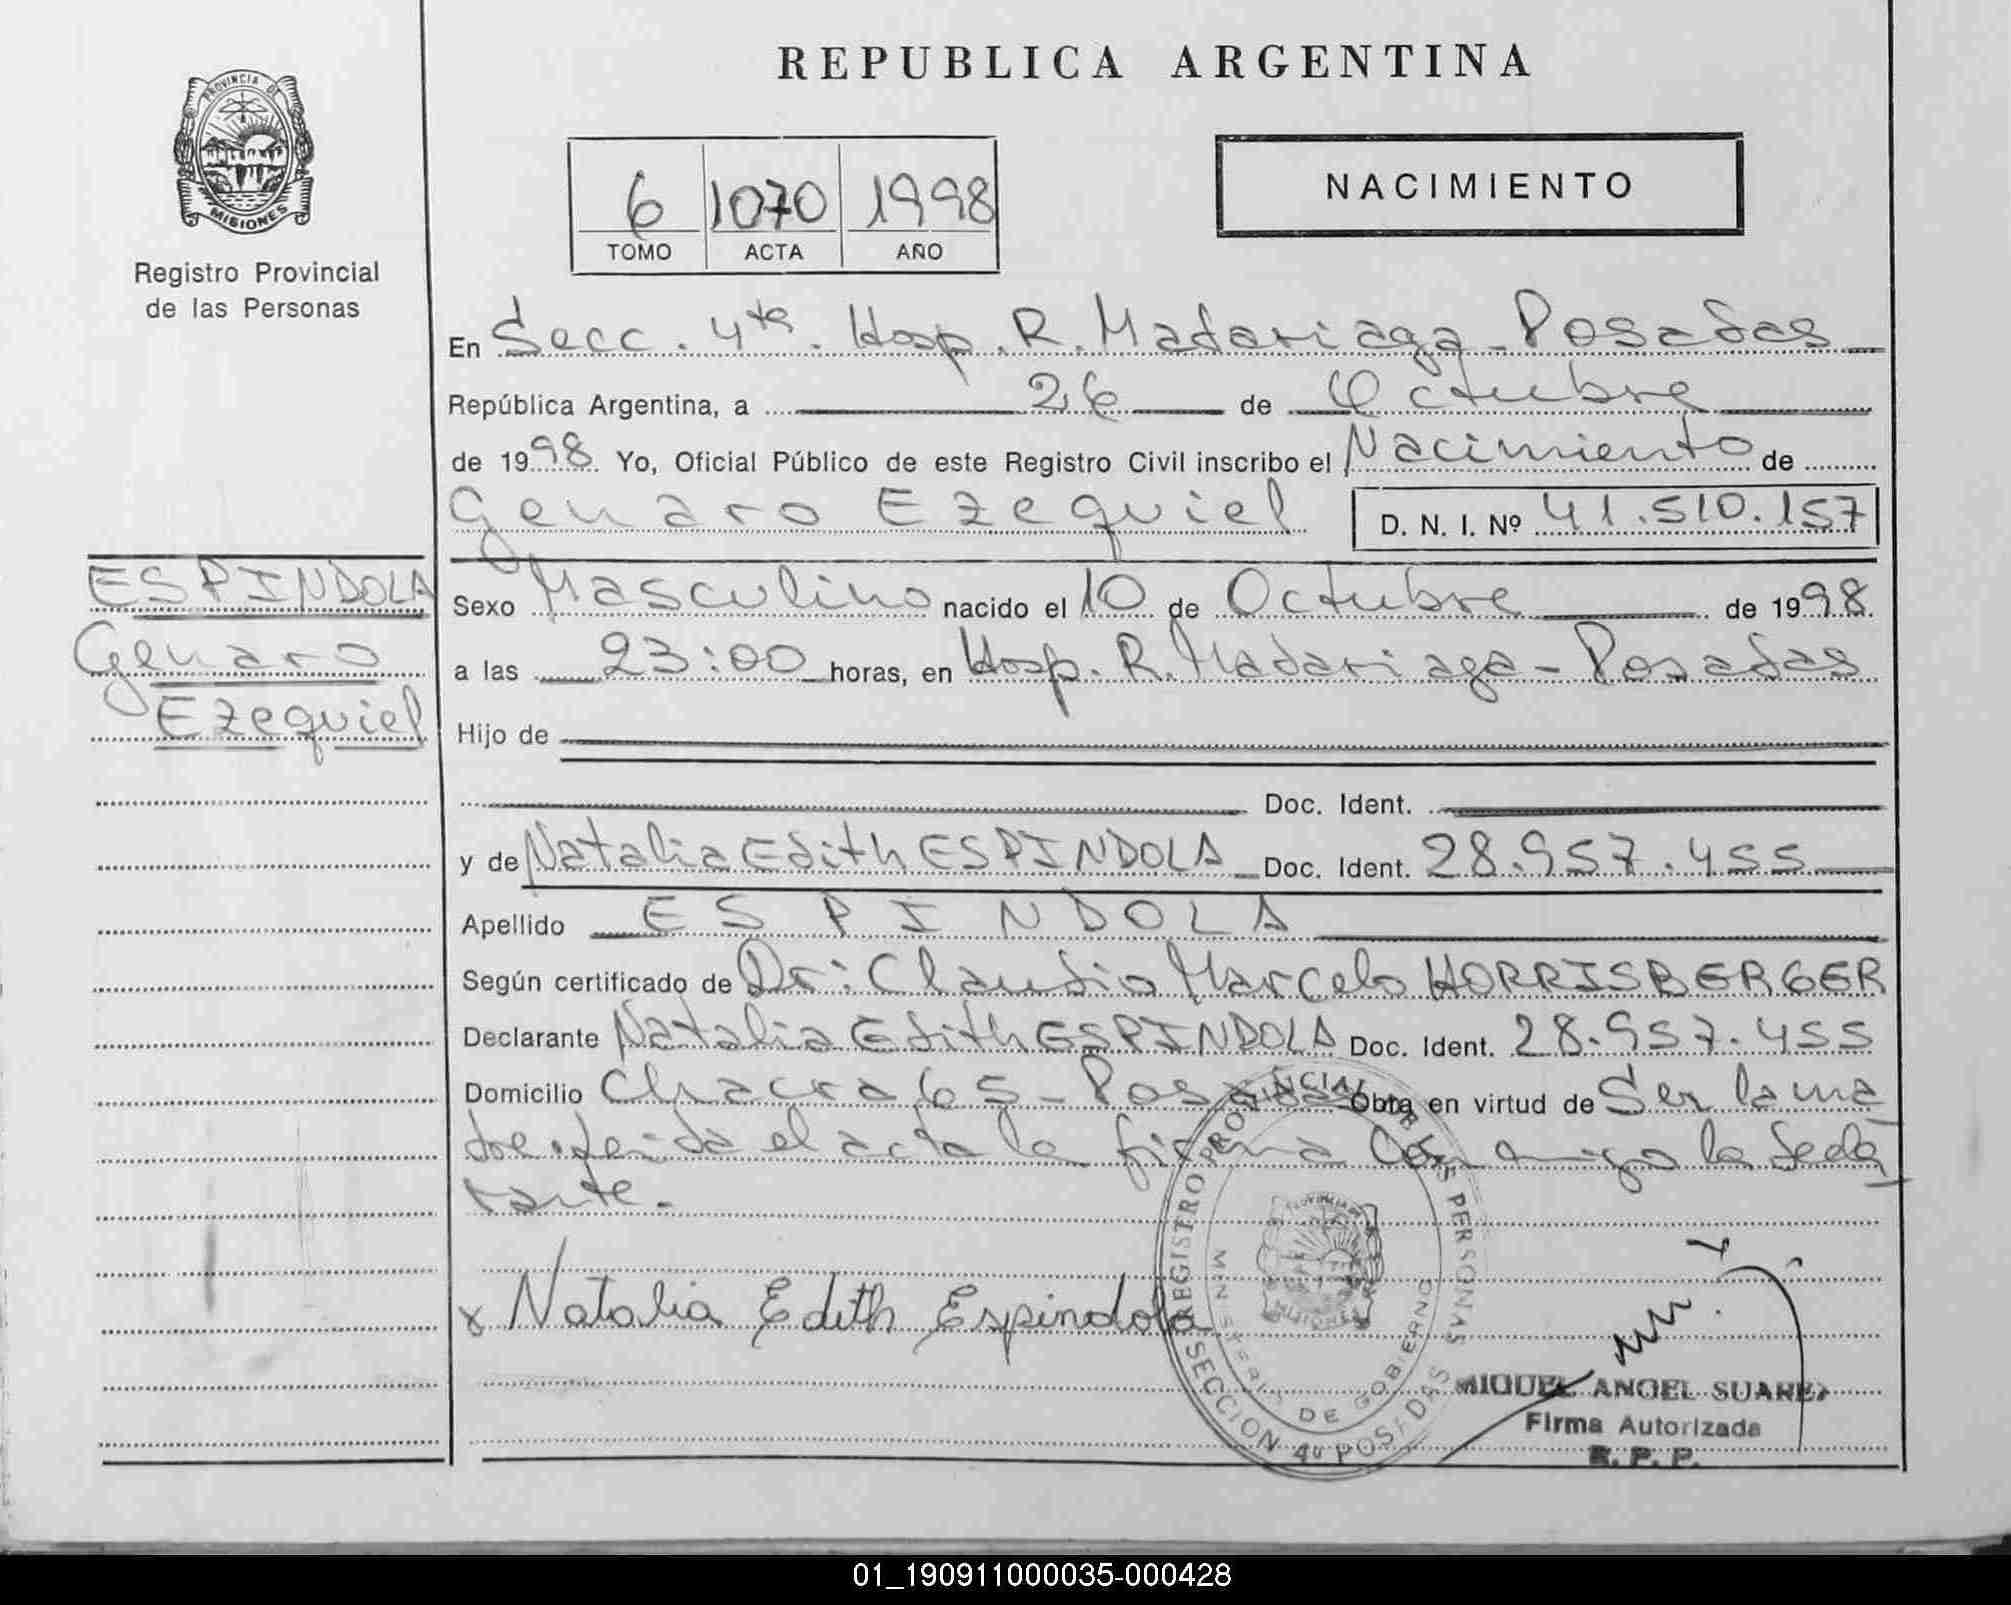 REPUBLICA ARGENTINA
PROVINCIA DE
MISIONES
Registro Provincial
de las Personas
6 1070 1998
TOMO ACTA AÑO
NACIMIENTO
En Secc. 4ta. Hosp. R. Madariaga - Posadas
República Argentina, a 26 de Octubre
de 1998. Yo, Oficial Público de este Registro Civil inscribo el Nacimiento de
Genaro Ezequiel D. N. I. Nº 41.510.157
ESPINDOLA
Genaro
Ezequiel
Sexo Masculino nacido el 10 de Octubre de 1998.
a las 23:00 horas, en Hosp. R. Madariaga - Posadas
Hijo de
Doc. Ident.
y de Natalia Edith ESPINDOLA Doc. Ident. 28.957.455
Apellido ESPINDOLA
Según certificado de Dr: Claudio Marcelo HORRISBERGER
Declarante Natalia Edith ESPINDOLA Doc. Ident. 28.957.455
Domicilio Chacra 65 - Posadas Obra en virtud de Ser la ma
dre. leida el acta la firma conmigo la decla
rante.
x Natalia Edith Espindola
REGISTRO PROVINCIAL DE LAS PERSONAS
MINISTERIO DE GOBIERNO
PROVINCIA DE
MISIONES
SECCION 4ª POSADAS
MIGUEL ANGEL SUAREZ
Firma Autorizada
R. P. P.
01_190911000035-000428